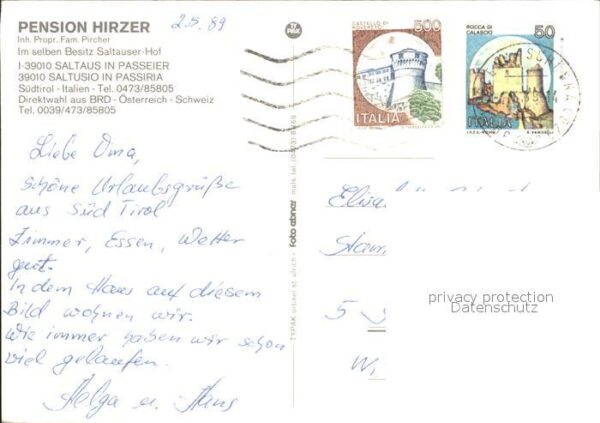 PENSION HIRZER
2.5.89
Inh. Propr. Fam. Pircher
Im selben Besitz Saltauser-Hof
I-39010 SALTAUS IN PASSEIER
39010 SALTUSIO IN PASSIRIA
Südtirol - Italien - Tel. 0473/85805
Direktwahl aus BRD - Österreich - Schweiz
Tel. 0039/473/85805
Liebe Oma,
schöne Urlaubsgrüße
aus Süd Tirol
Zimmer, Essen, Wetter
gut.
In dem Haus auf diesem
Bild wohnen wir.
Wie immer haben wir schon
viel gelaufen.
Helga u. Hans
TYPAK
foto ebner
CASTELLO DI
ROVERETO
500
ITALIA
ROCCA DI
CALASCIO
50
ITALIA
I.P.Z.S. - ROMA
Elisa
5
privacy protection
Datenschutz